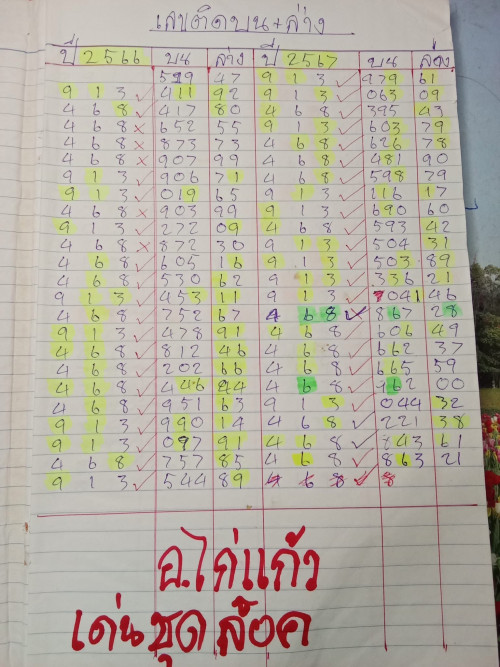 เลขติดบน+ล่าง
ปี 2566 บน ล่าง ปี 2567 บน ล่าง
519 47 9 1 3 ✓ 979 61
9 1 3 ✓ 411 92 9 1 3 ✓ 063 09
4 6 8 ✓ 417 80 4 6 8 ✓ 395 43
4 6 8 × 652 55 9 1 3 ✓ 603 79
4 6 8 × 873 73 4 6 8 ✓ 626 78
4 6 8 × 907 99 4 6 8 ✓ 481 90
9 1 3 ✓ 906 71 4 6 8 ✓ 598 79
9 1 3 ✓ 019 65 9 1 3 ✓ 116 17
4 6 8 × 903 99 9 1 3 ✓ 690 60
9 1 3 ✓ 272 09 4 6 8 ✓ 593 42
4 6 8 × 872 30 9 1 3 ✓ 504 31
4 6 8 ✓ 605 16 9 1 3 ✓ 503 89
4 6 8 ✓ 530 62 9 1 3 ✓ 336 21
9 1 3 ✓ 453 11 9 1 3 ✓ 7041 46
4 6 8 ✓ 752 67 4 6 8 ✓ 867 28
9 1 3 ✓ 478 91 4 6 8 606 49
4 6 8 ✓ 812 46 4 6 8 ✓ 662 37
4 6 8 ✓ 202 66 4 6 8 ✓ 665 59
4 6 8 ✓ 446 94 4 6 8 ✓ 962 00
4 6 8 ✓ 951 63 9 1 3 ✓ 044 32
9 1 3 ✓ 990 14 4 6 8 ✓ 221 38
9 1 3 ✓ 097 91 4 6 8 ✓ 843 61
4 6 8 ✓ 757 85 4 6 8 ✓ 863 21
9 1 3 ✓ 544 89 4 6 8 ✓ 8
อ.ไก่แก้ว
เด่นชุดล๊อค